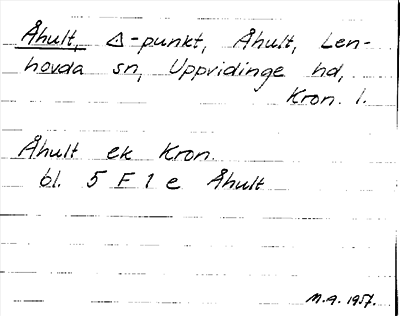 Åhult, △-punkt, Åhult, Len-
hovda sn, Uppvidinge hd,
Kron. l.
Åhult ek Kron.
bl. 5 F 1 e Åhult
M.A. 1957.